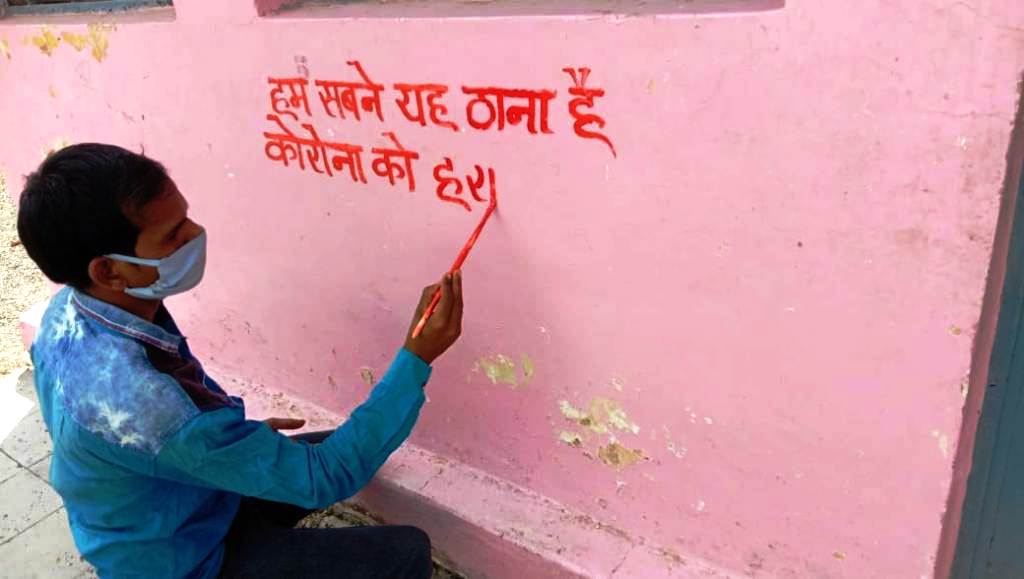 हम सबने यह ठाना है
कोरोना को हरा